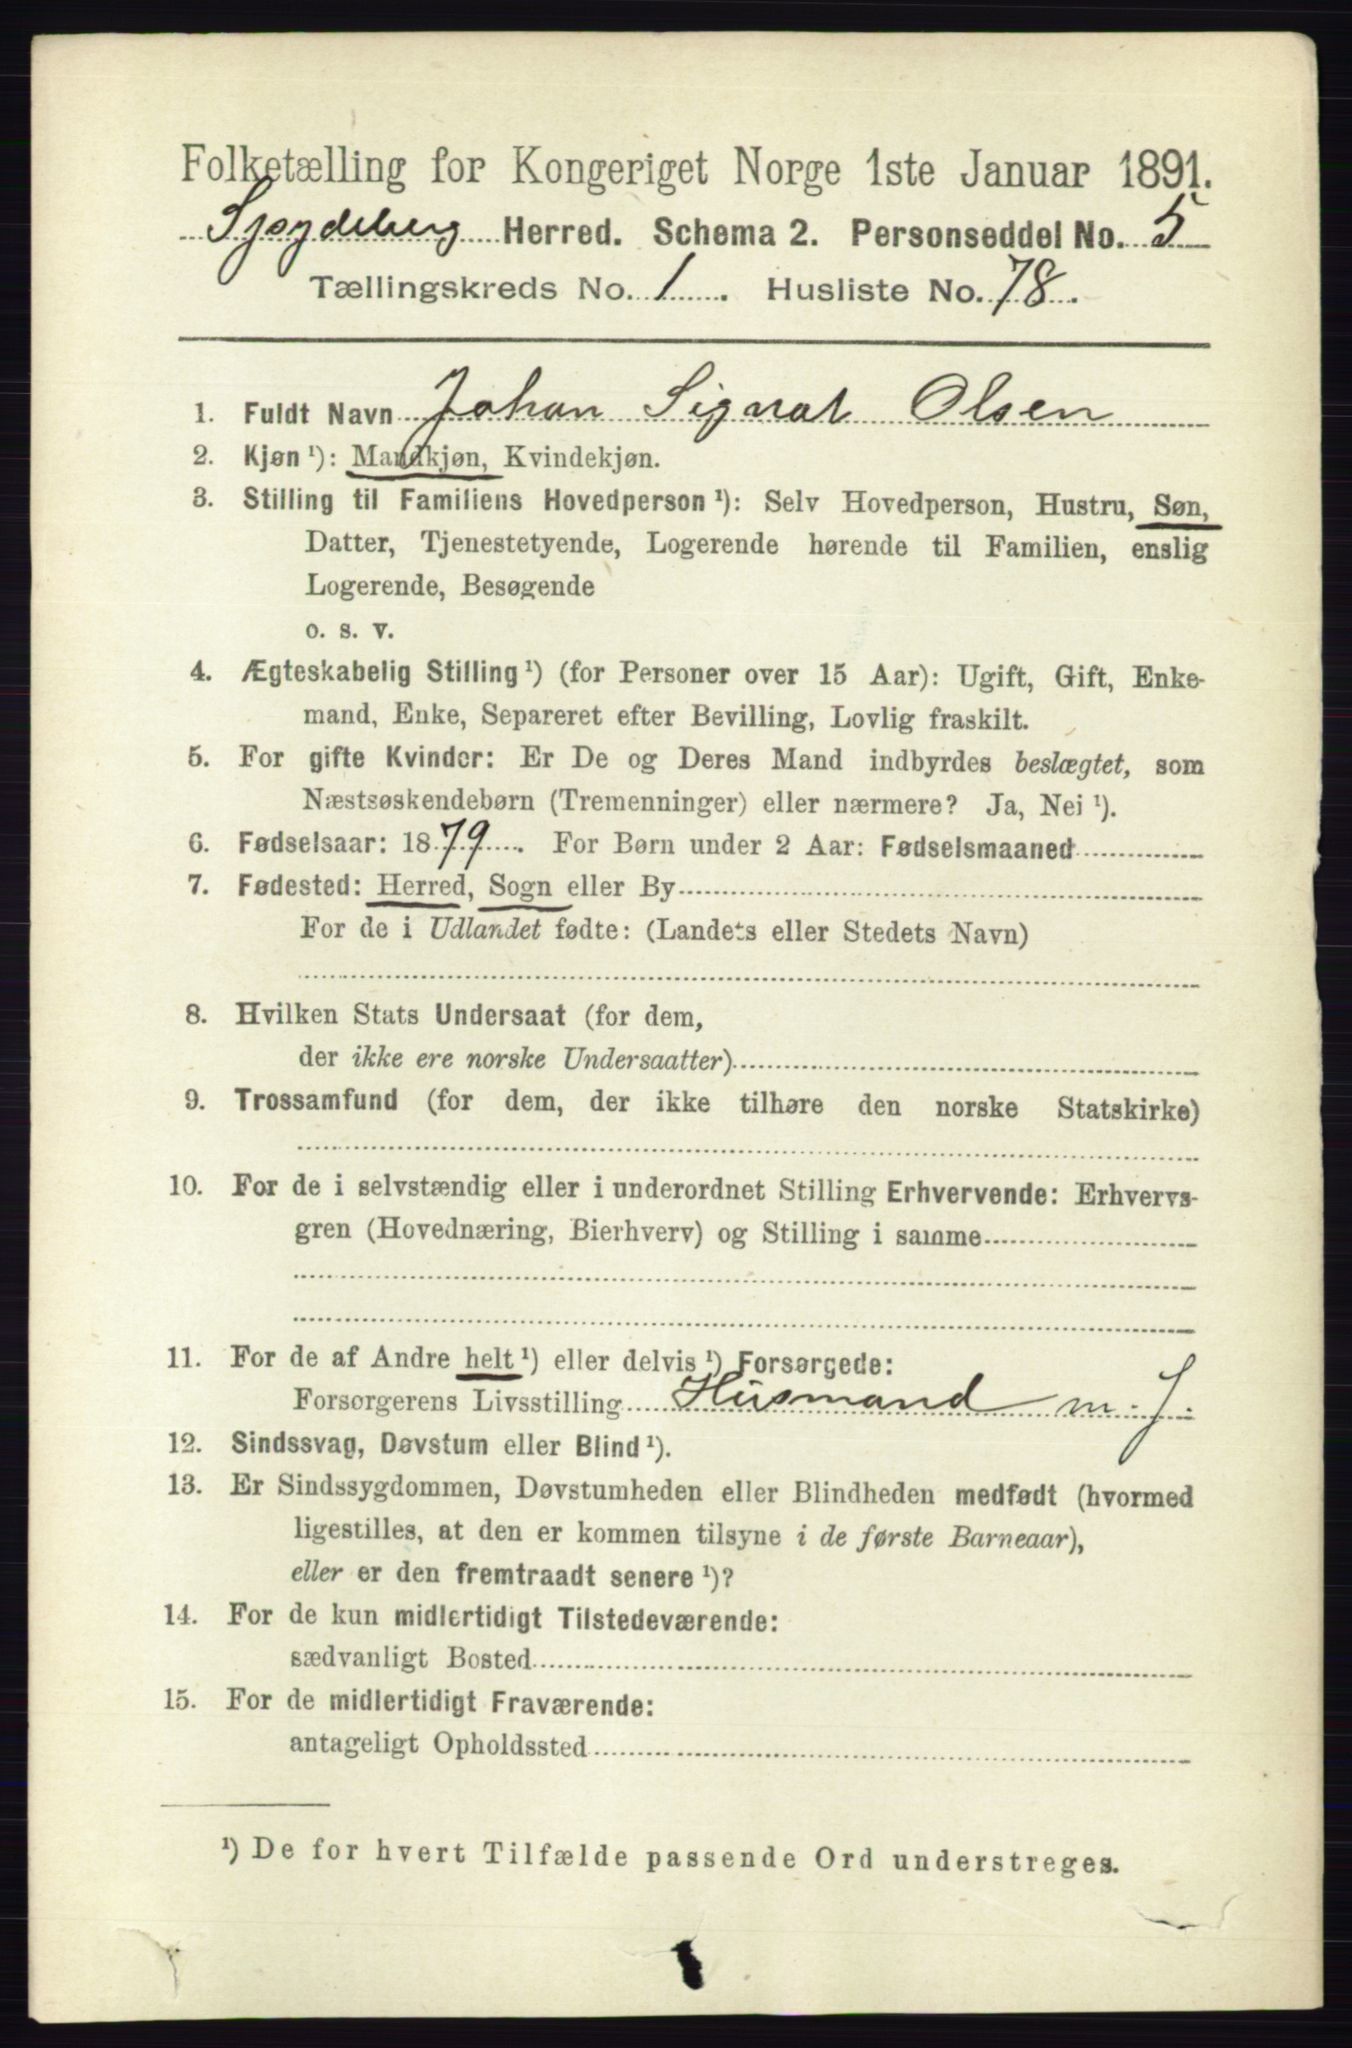 Folketælling for Kongeriget Norge 1ste Januar 1891.
Spydeberg Herred. Schema 2. Personseddel No. 5
Tællingskreds No. 1. Husliste No. 78.
1. Fuldt Navn Johan Sigvat Olsen
2. Kjøn ¹): Mandkjøn, Kvindekjøn.
3. Stilling til Familiens Hovedperson ¹): Selv Hovedperson, Hustru, Søn,
Datter, Tjenestetyende, Logerende hørende til Familien, enslig
Logerende, Besøgende
o. s. v.
4. Ægteskabelig Stilling ¹) (for Personer over 15 Aar): Ugift, Gift, Enke-
mand, Enke, Separeret efter Bevilling, Lovlig fraskilt.
5. For gifte Kvinder: Er De og Deres Mand indbyrdes beslægtet, som
Næstsøskendebørn (Tremenninger) eller nærmere? Ja, Nei ¹).
6. Fødselsaar: 1879. For Børn under 2 Aar: Fødselsmaaned
7. Fødested: Herred, Sogn eller By
For de i Udlandet fødte: (Landets eller Stedets Navn)
8. Hvilken Stats Undersaat (for dem,
der ikke ere norske Undersaatter)
9. Trossamfund (for dem, der ikke tilhøre den norske Statskirke)
10. For de i selvstændig eller i underordnet Stilling Erhvervende: Erhvervs-
gren (Hovednæring, Bierhverv) og Stilling i samme
11. For de af Andre helt ¹) eller delvis ¹) Forsørgede:
Forsørgerens Livsstilling Husmand m. J.
12. Sindssvag, Døvstum eller Blind ¹).
13. Er Sindssygdommen, Døvstumheden eller Blindheden medfødt (hvormed
ligestilles, at den er kommen tilsyne i de første Barneaar),
eller er den fremtraadt senere ¹)?
14. For de kun midlertidigt Tilstedeværende:
sædvanligt Bosted
15. For de midlertidigt Fraværende:
antageligt Opholdssted
¹) De for hvert Tilfælde passende Ord understreges.